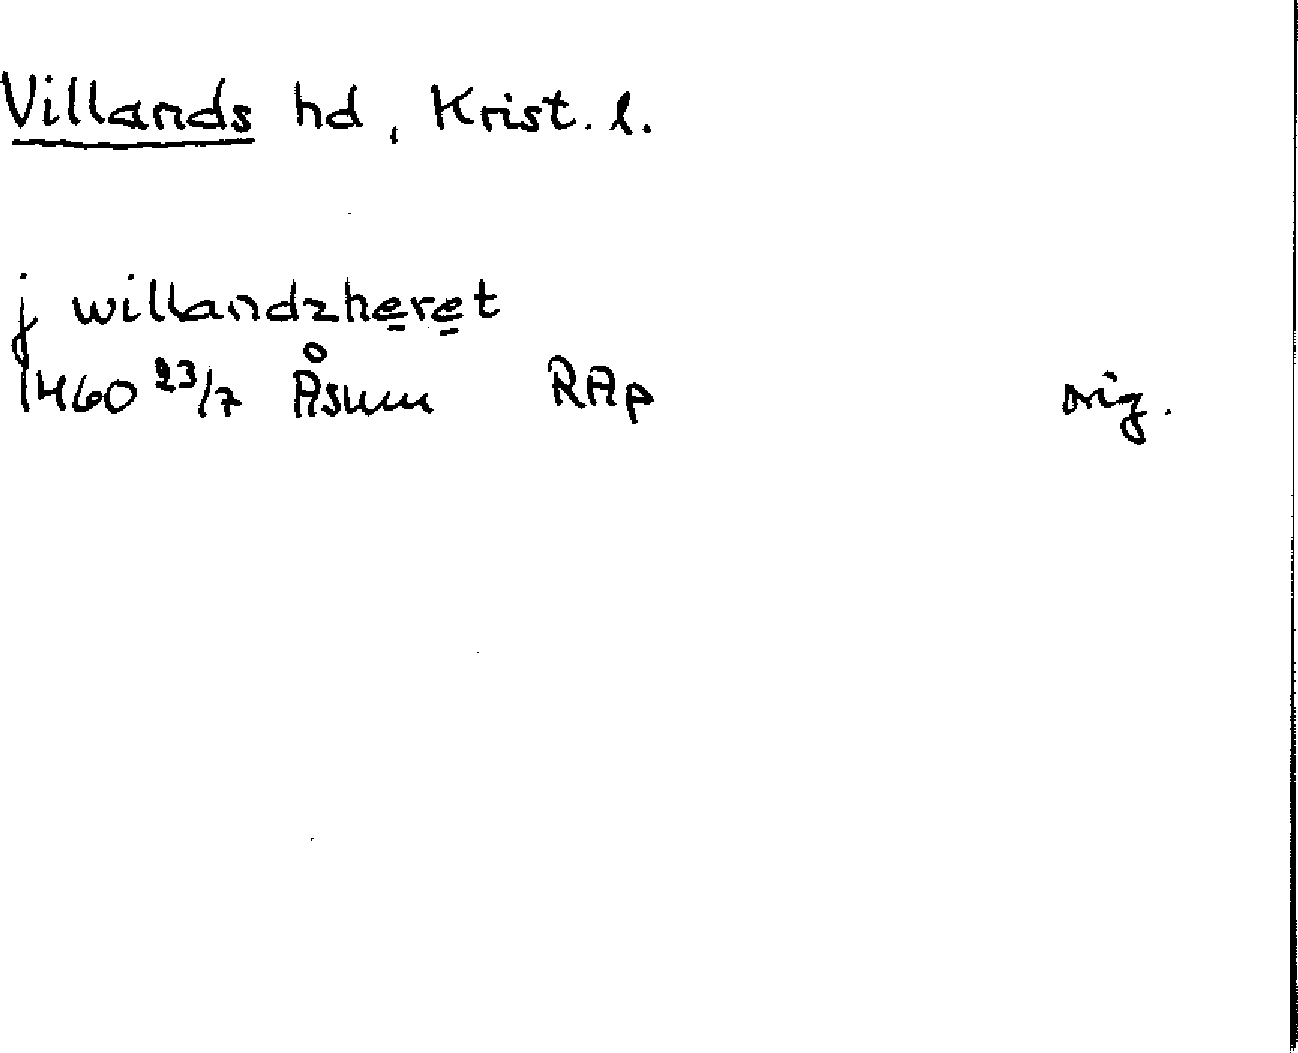 Villands hd, Krist. l.
j willandzheret
1460 23/7 Åsum RAp orig.